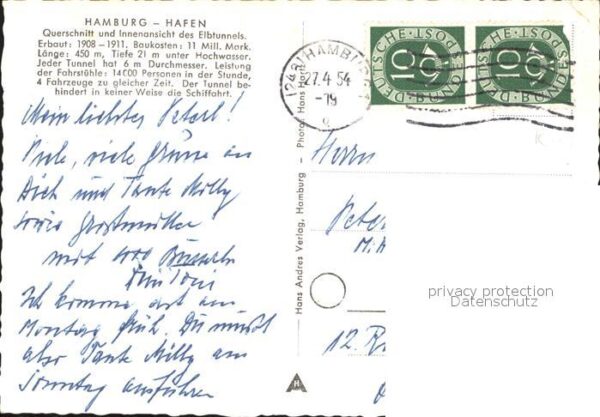 HAMBURG – HAFEN
Querschnitt und Innenansicht des Elbtunnels.
Erbaut: 1908 – 1911. Baukosten: 11 Mill. Mark.
Länge: 450 m, Tiefe 21 m unter Hochwasser.
Jeder Tunnel hat 6 m Durchmesser. Leistung
der Fahrstühle: 1400 Personen in der Stunde,
4 Fahrzeuge zu gleicher Zeit. Der Tunnel be-
hindert in keiner Weise die Schiffahrt.
Mein liebster Peterl!
Viele, viele Grüsse an
Dich und Tante Milly
sowie Grossmutter
mit 1000 Busserln
Ich komme erst am
Montag früh. Du musst
also Tante Milly am
Sonntag ausführen
Hans Andres Verlag, Hamburg - Photo: Hans Hart
H
HAMBURG
27.4.54
-19
DEUTSCHE BUNDESPOST
10
DEUTSCHE BUNDESPOST
10
Herrn
Peter
12. R
privacy protection
Datenschutz